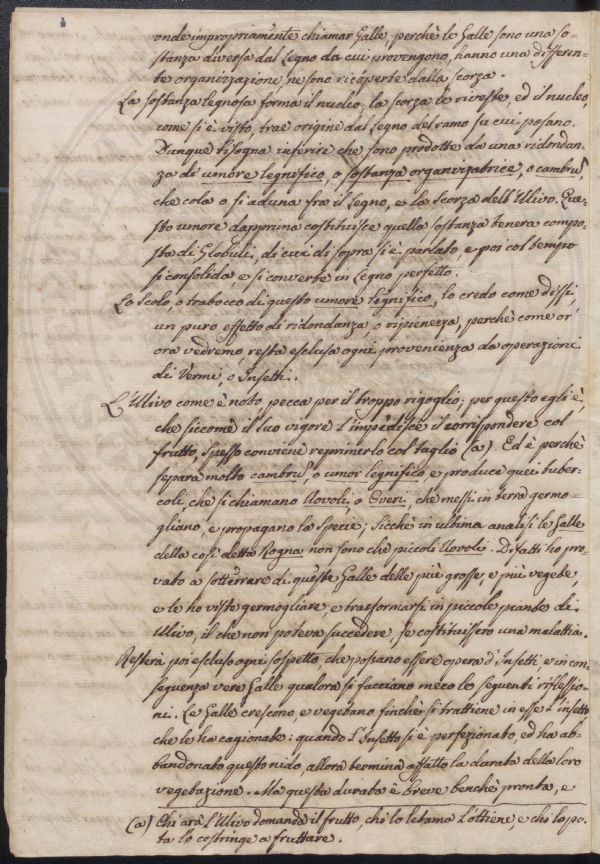 onde impropriamente chiamar Galle, perchè le Galle sono una so-
stanza diversa dal Legno da cui provengono, hanno una differen-
te organizzazione ne sono ricoperte dalla scorza.
La sostanza legnosa forma il nucleo, la scorza le riveste, ed il nucleo,
come si è visto, trae origine dal Legno del ramo su cui posano.
Dunque bisogna inferire che sono prodotte da una ridondan-
za di umore legnifico, o sostanza organizatrice, o cambru,
che cola o si aduna fra il Legno, e la Scorza dell'Ulivo. Que-
sto umore dapprima costituisce quella sostanza tenera compo-
sta di Globuli, di cui di sopra si è parlato, e poi col tempo
si consolida, e si converte in Legno perfetto.
Lo scolo, o trabocco di questo umore legnifico, lo credo come dissi,
un puro effetto di ridondanza, o ripienezza, perchè come or
ora vedremo, resta esclusa ogni provenienza da operazioni
di Vermi, o Insetti.
L'Ulivo come è noto pecca per il troppo rigoglio; per questo egli è,
che siccome il suo vigore l'impedisce il corrispondere col
frutto, spesso conviene reprimerlo col taglio (a). Ed è perchè
separa molto cambru, o umor legnifico e produce quei tuber-
coli, che si chiamano Uovoli, o Overi, che messi in terra germo-
gliano, e propagano la specie; sicchè in ultima analisi le Galle
della così detta Rogna non sono che piccoli Uovoli. Difatti ho pro-
vato a sotterrare di queste Galle delle più grosse, e più vegete,
e le ho viste germogliare, e trasformarsi in piccole piante di
Ulivo, il che non poteva succedere, se costituissero una malattia.
Resterà poi escluso ogni sospetto, che possano essere opera d'Insetti, e in con-
seguenza vere Galle qualora si facciano meco le seguenti riflessio-
ni. Le Galle crescono, e vegetano finchè si trattiene in esse l'insetto
che le ha cagionate: quando l'Insetto si è perfezionato, ed ha ab-
bandonato questo nido, allora termina affatto la durata della loro
vegetazione. Ma questa durata è breve benchè pronta, e
(a) Chi ara l'Ulivo domanda il frutto, chi lo letama l'ottiene, e chi lo po-
ta lo costringe a fruttare.